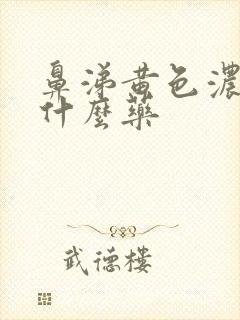 鼻涕黄色濃
什麼藥
武德楼